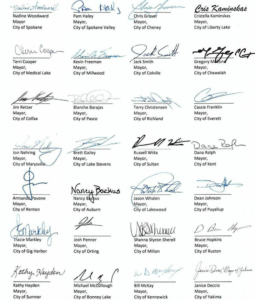 Nadine Woodward
Mayor
City of Spokane
Pam Haley
Mayor
City of Spokane Valley
Chris Gravel
Mayor
City of Cheney
Cris Kaminskas
Cristella Kaminskas
Mayor
City of Liberty Lake
Terri Cooper
Terri Cooper
Mayor,
City of Medical Lake
Kevin Freeman
Mayor,
City of Millwood
Jack Smith
Jack Smith
Mayor,
City of Colville
Gregory
Mayor,
City of Chewelah
Jim Retzer
Mayor,
City of Colfax
Blanche Barajas
Mayor,
City of Pasco
Terry Christensen
Mayor,
City of Richland
Cassie Franklin
Mayor,
City of Everett
Jon Nehring
Mayor,
City of Marysville
Brett Gailey
Mayor,
City of Lake Stevens
Russell Wiita
Mayor,
City of Sultan
Dana Ralph
Dana Ralph
Mayor,
City of Kent
Armondo Pavone
Mayor,
City of Renton
Nancy Backus
Nancy Backus
Mayor,
City of Auburn
Jason Whalen
Mayor,
City of Lakewood
Dean Johnson
Mayor,
City of Puyallup
Tracie Markley
Mayor,
City of Gig Harbor
Josh Penner
Mayor,
City of Orting
Shanna Styron Sherell
Mayor,
City of Milton
Bruce Hopkins
Mayor,
City of Ruston
Kathy Hayden
Kathy Hayden
Mayor,
City of Sumner
Michael McCullough
Mayor,
City of Bonney Lake
Bill McKay
Mayor,
City of Kennewick
Janice Deccio
Mayor,
City of Yakima